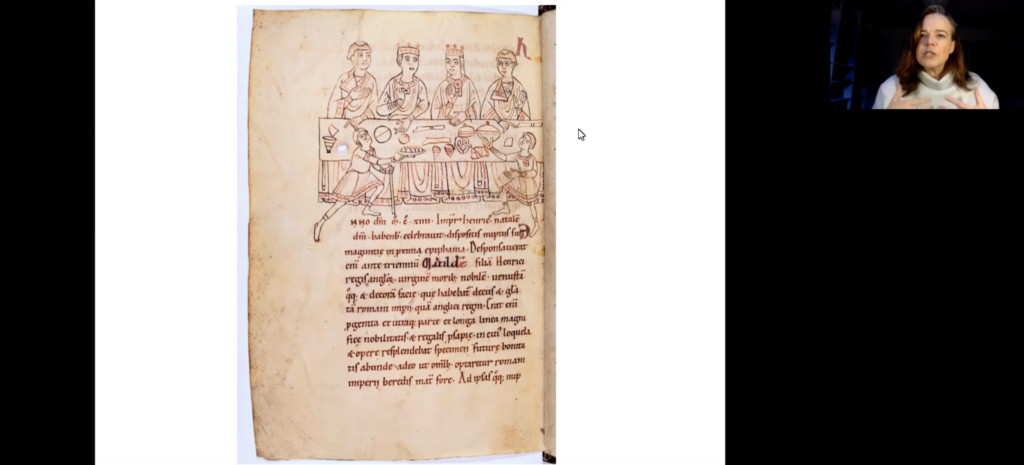 h
nno dñi ⁊ c̄ xiiii Imp̄r henric̄ natalē
dñi babenb̄ celebrauit dispositis nuptiis suis
maguntie in prima epiphania. Desponsauerat
eni ante trienniū Matildē filiā Henrici
regis anglo virginē morib nobilē uenustā
q̄q & decorā facie que habebat decus & glā
tā romani imp̄ii quā anglici regni. Erat eni
p̄genita ex utraq parte ex longa linea magni
fice nobilitatis & regalis p̄sapie in cui loquela
& opere resplendebat specimen future bonita
tis abunde adeo ut omib optaretur romani
imperii heredis mat̄ fore. Ad ipsas q̄q nup